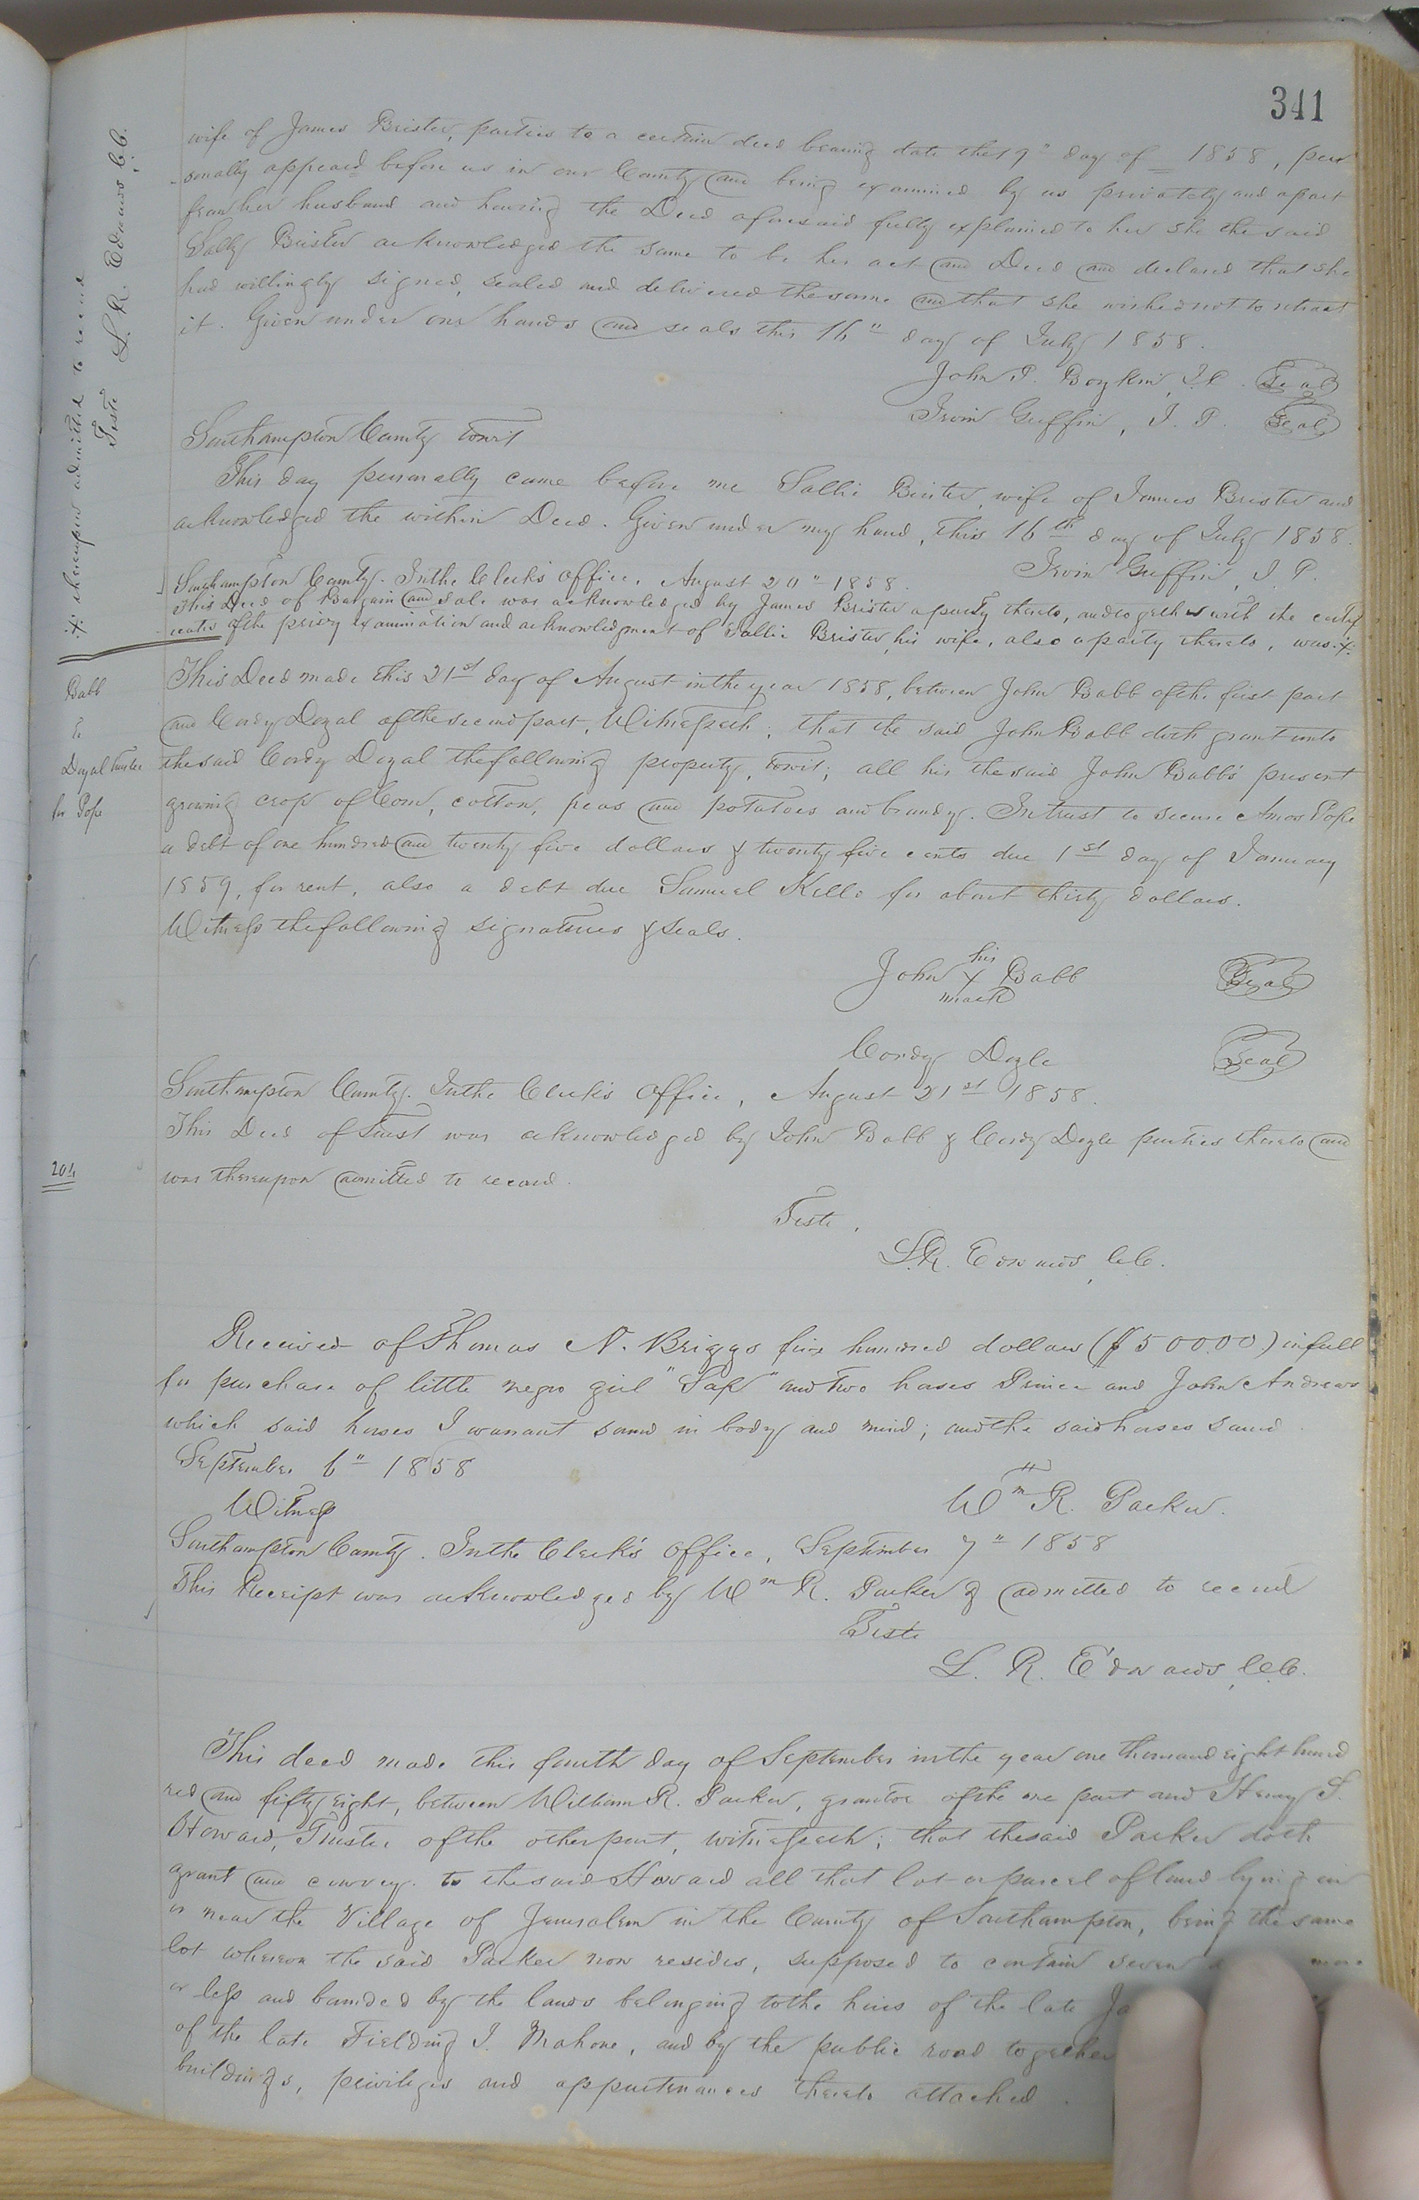 341
wife of James Brister, parties to a certain deed bearing date the 19" day of _ 1858, per
sonally appeard before us in our County and being examined by us privately and apart
from her husband and having the Deed aforesaid fully explained to her she the said
Sally Brister acknowledged the same to be her act and Deed and declared that she
had willingly signed, sealed and delivered the same and that she wished not to retract
it. Given under our hands and seals this 16" day of July 1858.
John P. Boykin, J.P. Seal
Irvin Griffin, J. P. Seal
Southampton County towit
This day personally came before me Sallie Brister, wife of James Brister and
acknowledged the within Deed. Given under my hand, this 16th day of July 1858.
Irvin Griffin, J. P.
Southampton County. In the Clerk's Office, August 20" 1858.
This Deed of Bargain and sale was acknowledged by James Brister a party thereto, and together with the certif
icate of the privy examination and acknowledgment of Sallie Brister, his wife, also a party thereto, was
thereupon admitted to record
Teste L. R. Edwards C.C.
Babb
to
Doyal trustee
for Pope
This Deed made this 21st day of August in the year 1858, between John Babb of the first part
and Cordy Doyal of the second part, Witnesseth; that the said John Babb doth grant unto
the said Cordy Doyal the following property, towit; all his the said John Babb's present
growing crop of Corn, cotton, peas and potatoes and brandy. In trust to secure Amos Pope
a debt of one hundred and twenty five dollars & twenty five cents due 1st day of January
1859, for rent, also a debt due Samuel Kello for about thirty dollars.
Witness the following signatures & seals.
his
John X Babb Seal
mark
Cordy Doyle Seal
Southampton County. In the Clerk's Office, August 21st 1858.
This Deed of Trust was acknowledged by John Babb & Cordy Doyle parties thereto and
was thereupon admitted to record.
Teste,
L.R. Edwards, C.C.
Received of Thomas N. Briggs five hundred dollars ($500.00) in full
for purchase of little negro girl "Saf" and two horses Prince and John Andrews
which said horses I warrant sound in body and mind; and the said horses sound.
September 6" 1858
Witness
Wm R. Parker.
Southampton County. In the Clerk's Office, September 7" 1858
This Receipt was acknowledged by Wm R. Parker & admitted to record
Teste
L. R. Edwards, C.C.
This deed made this fourth day of September in the year one thousand eight hund
red and fifty eight, between William R. Parker, grantor of the one part and Henry S.
Howard, Trustee of the other part, witnesseth; that the said Parker doth
grant and convey to the said Howard all that lot or parcel of land lying in
or near the Village of Jerusalem in the County of Southampton, being the same
lot whereon the said Parker now resides, supposed to contain seven more
or less and bounded by the lands belonging to the heirs of the late
of the late Fielding J. Mahone, and by the public road together
buildings, privileges and appurtenances thereto attached.